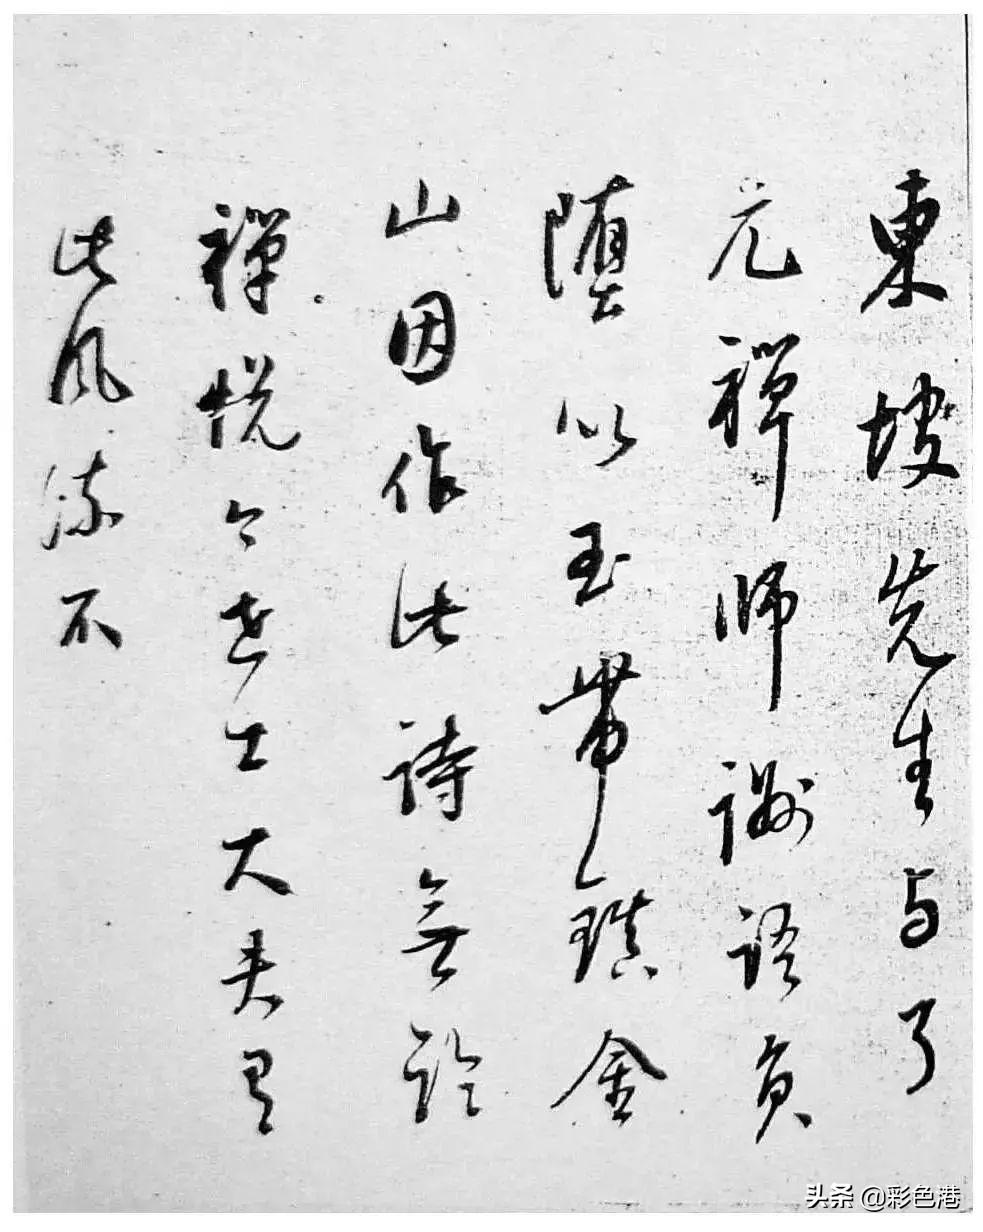 東坡先生与了
元禪師謝語負
堕以玉帶瑱金
山因作此詩無論
禪悦今世士大夫有
此風流不
头条 @彩色港